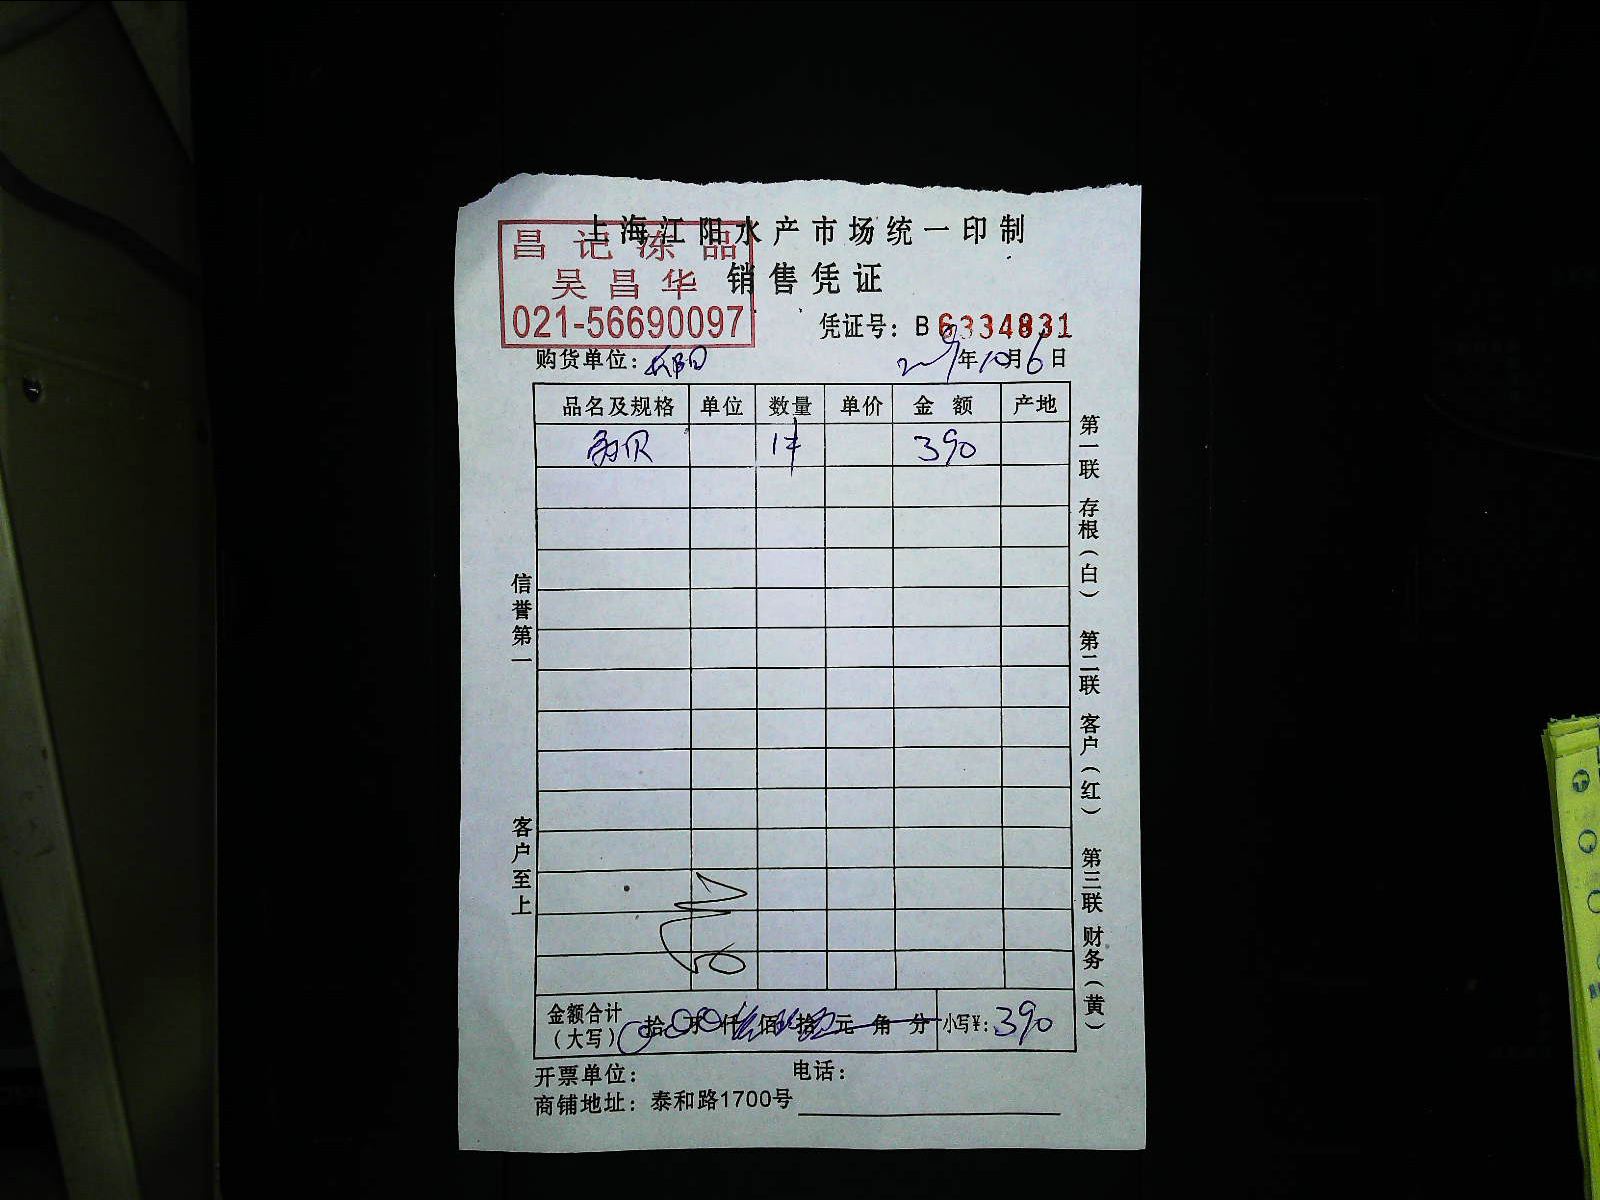 上海江阳水产市场统一印制
昌记冻品
吴昌华
021-56690097
销售凭证
凭证号：B 6334831
购货单位：
2009年10月6日
品名及规格 单位 数量 单价 金额 产地
1件 390
信誉第一 客户至上
第一联 存根（白） 第二联 客户（红） 第三联 财务（黄）
金额合计（大写） 拾 万 仟 佰 拾 元 角 分 小写¥：390
开票单位： 电话：
商铺地址：泰和路1700号